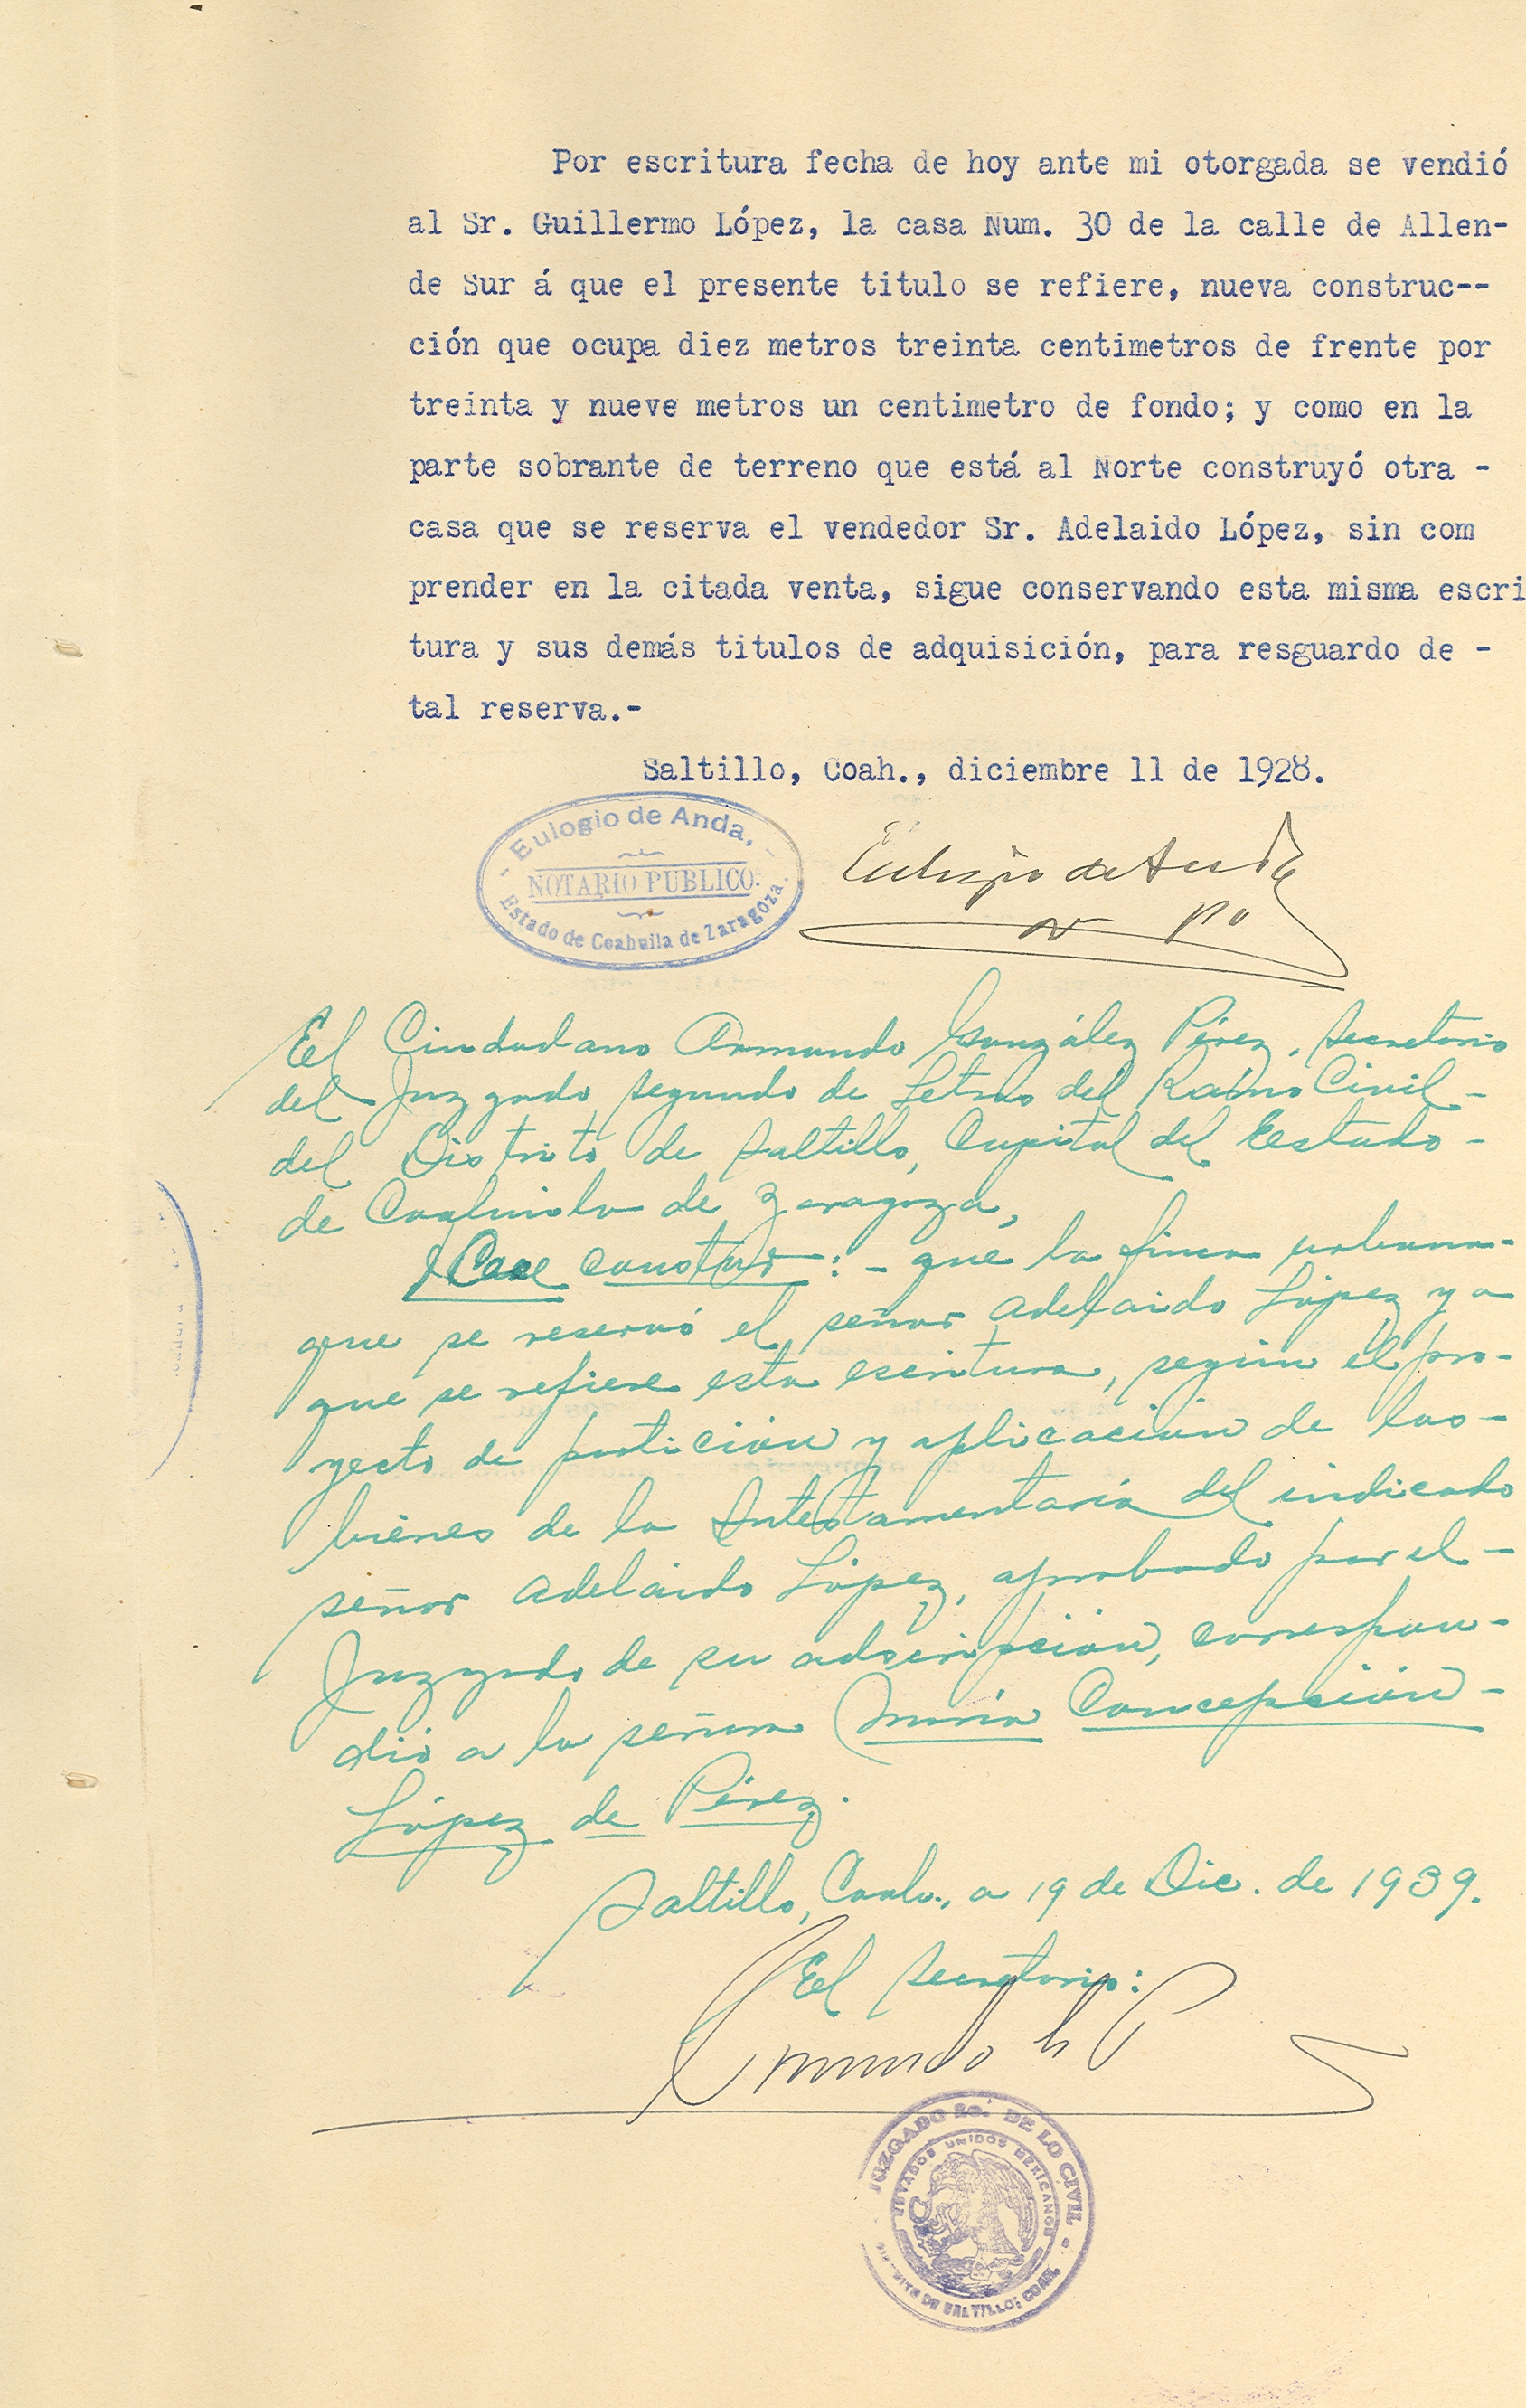 Por escritura fecha de hoy ante mi otorgada se vendió
al Sr. Guillermo López, la casa Num. 30 de la calle de Allen-
de Sur á que el presente titulo se refiere, nueva construc--
ción que ocupa diez metros treinta centimetros de frente por
treinta y nueve metros un centimetro de fondo; y como en la
parte sobrante de terreno que está al Norte construyó otra -
casa que se reserva el vendedor Sr. Adelaido López, sin com
prender en la citada venta, sigue conservando esta misma escri
tura y sus demás titulos de adquisición, para resguardo de -
tal reserva.-
Saltillo, Coah., diciembre 11 de 1928.
- Eulogio de Anda, -
NOTARIO PUBLICO.
Estado de Coahuila de Zaragoza.
Eulogio de Anda
N Po
El Ciudadano Armando González Pérez, Secretario
del Juzgado segundo de Letras del Ramo Civil -
del Distrito de Saltillo, Capital del Estado -
de Coahuila de Zaragoza,
Hace constar: - que la finca urbana -
que se reservó el señor Adelaido López y a
que se refiere esta escritura, según el pro-
yecto de partición y aplicación de los -
bienes de la Intestamentaria del indicado
señor Adelaido López, aprobado por el -
Juzgado de su adscripción, correspon-
dio a la señora María Concepción -
López de Pérez.
Saltillo, Coah., a 19 de Dic. de 1939.
El Secretario:
JUZGADO 2o. DE LO CIVIL
ESTADOS UNIDOS MEXICANOS
DISTRITO DE SALTILLO, COAH.